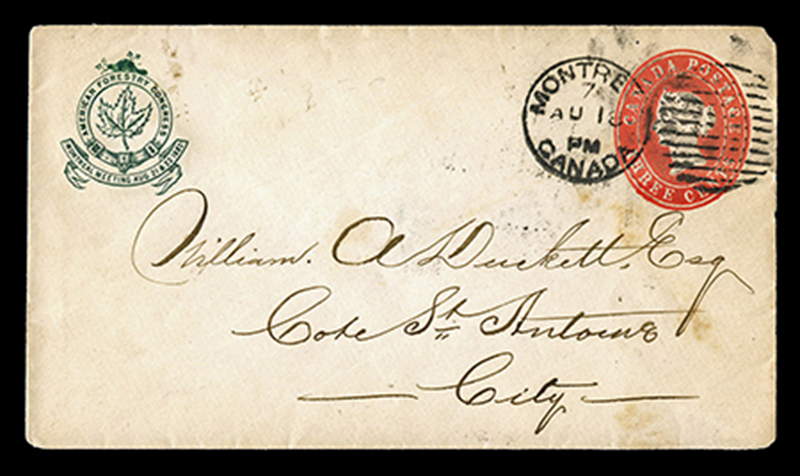 AMERICAN FORESTRY CONGRESS
MONTREAL MEETING AUG. 21 & 23 1882
MONTREA
7
AU 18
PM
CANADA
CANADA POSTAGE
THREE CENTS
William. A Duckett, Esq
Cote St. Antoine
City